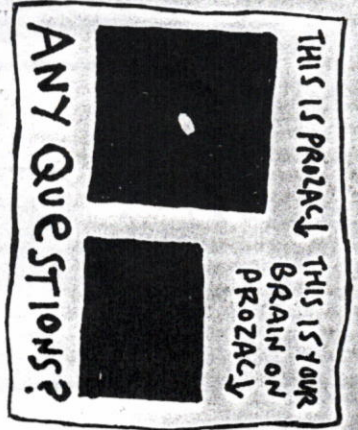 THIS IS PROZAC↓
THIS IS YOUR
BRAIN ON
PROZAC↓
ANY QUESTIONS?